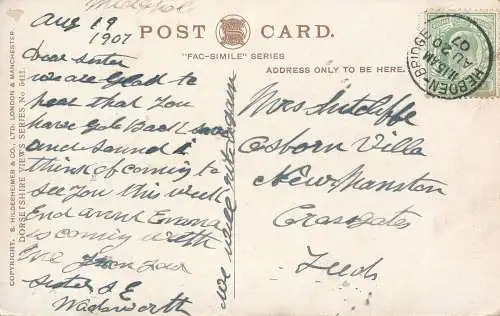 Aug 19
1907
Dear Sister
we are glad to
hear that you
have got back safe
and sound i
think of coming to
see you this week
End and Emma
is coming with
me from your
Sister S E
Wadsworth
we will write again
POST CARD.
"FAC-SIMILE" SERIES
ADDRESS ONLY TO BE HERE.
Mrs Sutcliffe
Osborn Villa
New Manston
Crossgates
Leeds
HEBDEN BRIDGE
11.15AM
AU 20
07
COPYRIGHT, S. HILDESHEIMER & CO., LTD. LONDON & MANCHESTER.
DORSETSHIRE VIEWS SERIES, No. 5411.